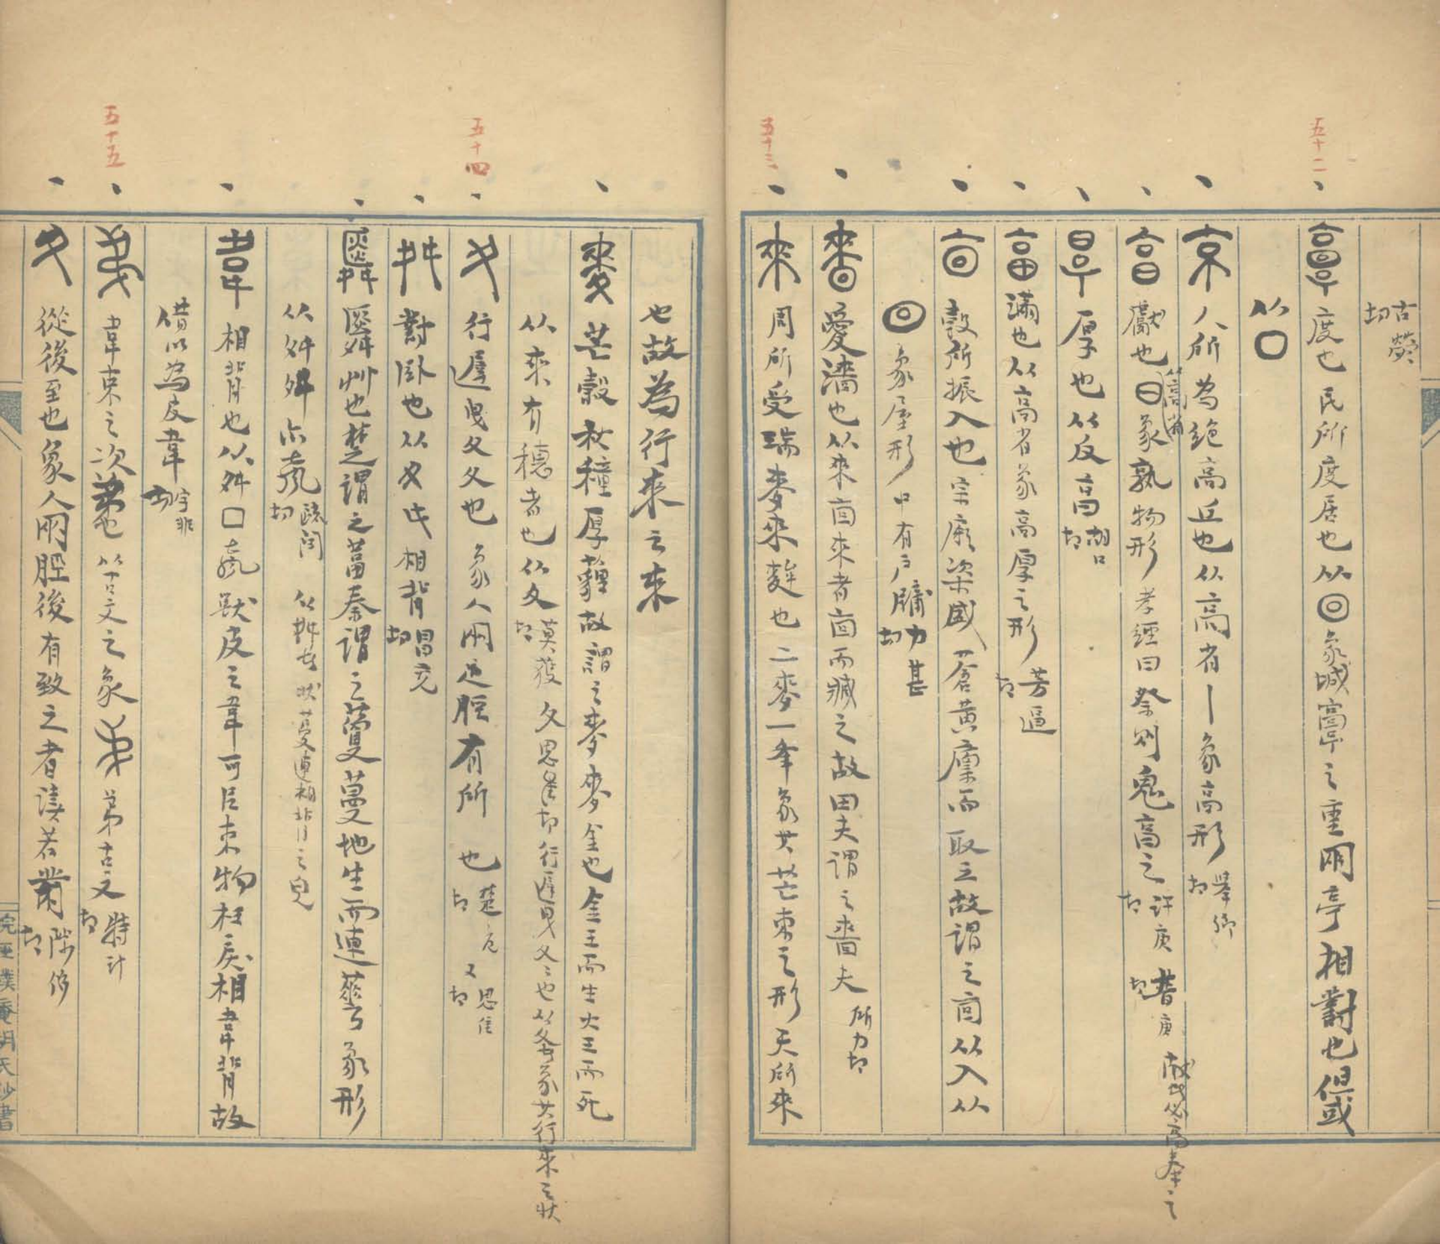 古熒切
五十二
𩫖度也民所度居也从回象城𩫖之重兩亭相對也但或
从口
京人所為絕高丘也从高省丨象高形舉卿切
亯獻也从高省曰象孰物形孝經曰祭則鬼亯之許庚切普庚切
㫗厚也从反亯胡口切
畐滿也从高省象高厚之形芳逼切
㐭穀所振入也宗廟粢盛蒼黃㐭而取之故謂之㐭从入从
回象屋形中有戶牖力甚切
嗇愛濇也从來㐭來者㐭而臧之故田夫謂之嗇夫所力切
五十三
來周所受瑞麥來麰也二麥一夆象其芒朿之形天所來
也故為行來之來
麥芒穀秋種厚薶故謂之麥麥金也金王而生火王而死
从來有穗者也从夊莫獲切
五十四
夊行遲曳夊夊也象人兩足脛有所也楚危切又思隹切
舛對臥也从夊㐄相背昌兗切
䑞䑞艸也楚謂之葍秦謂之蔓蔓地生而連蕚象形
从舛舛亦聲
韋相背也从舛囗聲獸皮之韋可㠯束物枉戾相韋背故
借以為皮韋宇非切
五十五
弟韋束之次弟也从古文之象弟古文特計切
夂從後至也象人兩脛後有致之者讀若黹陟侈切
胡氏鈔書